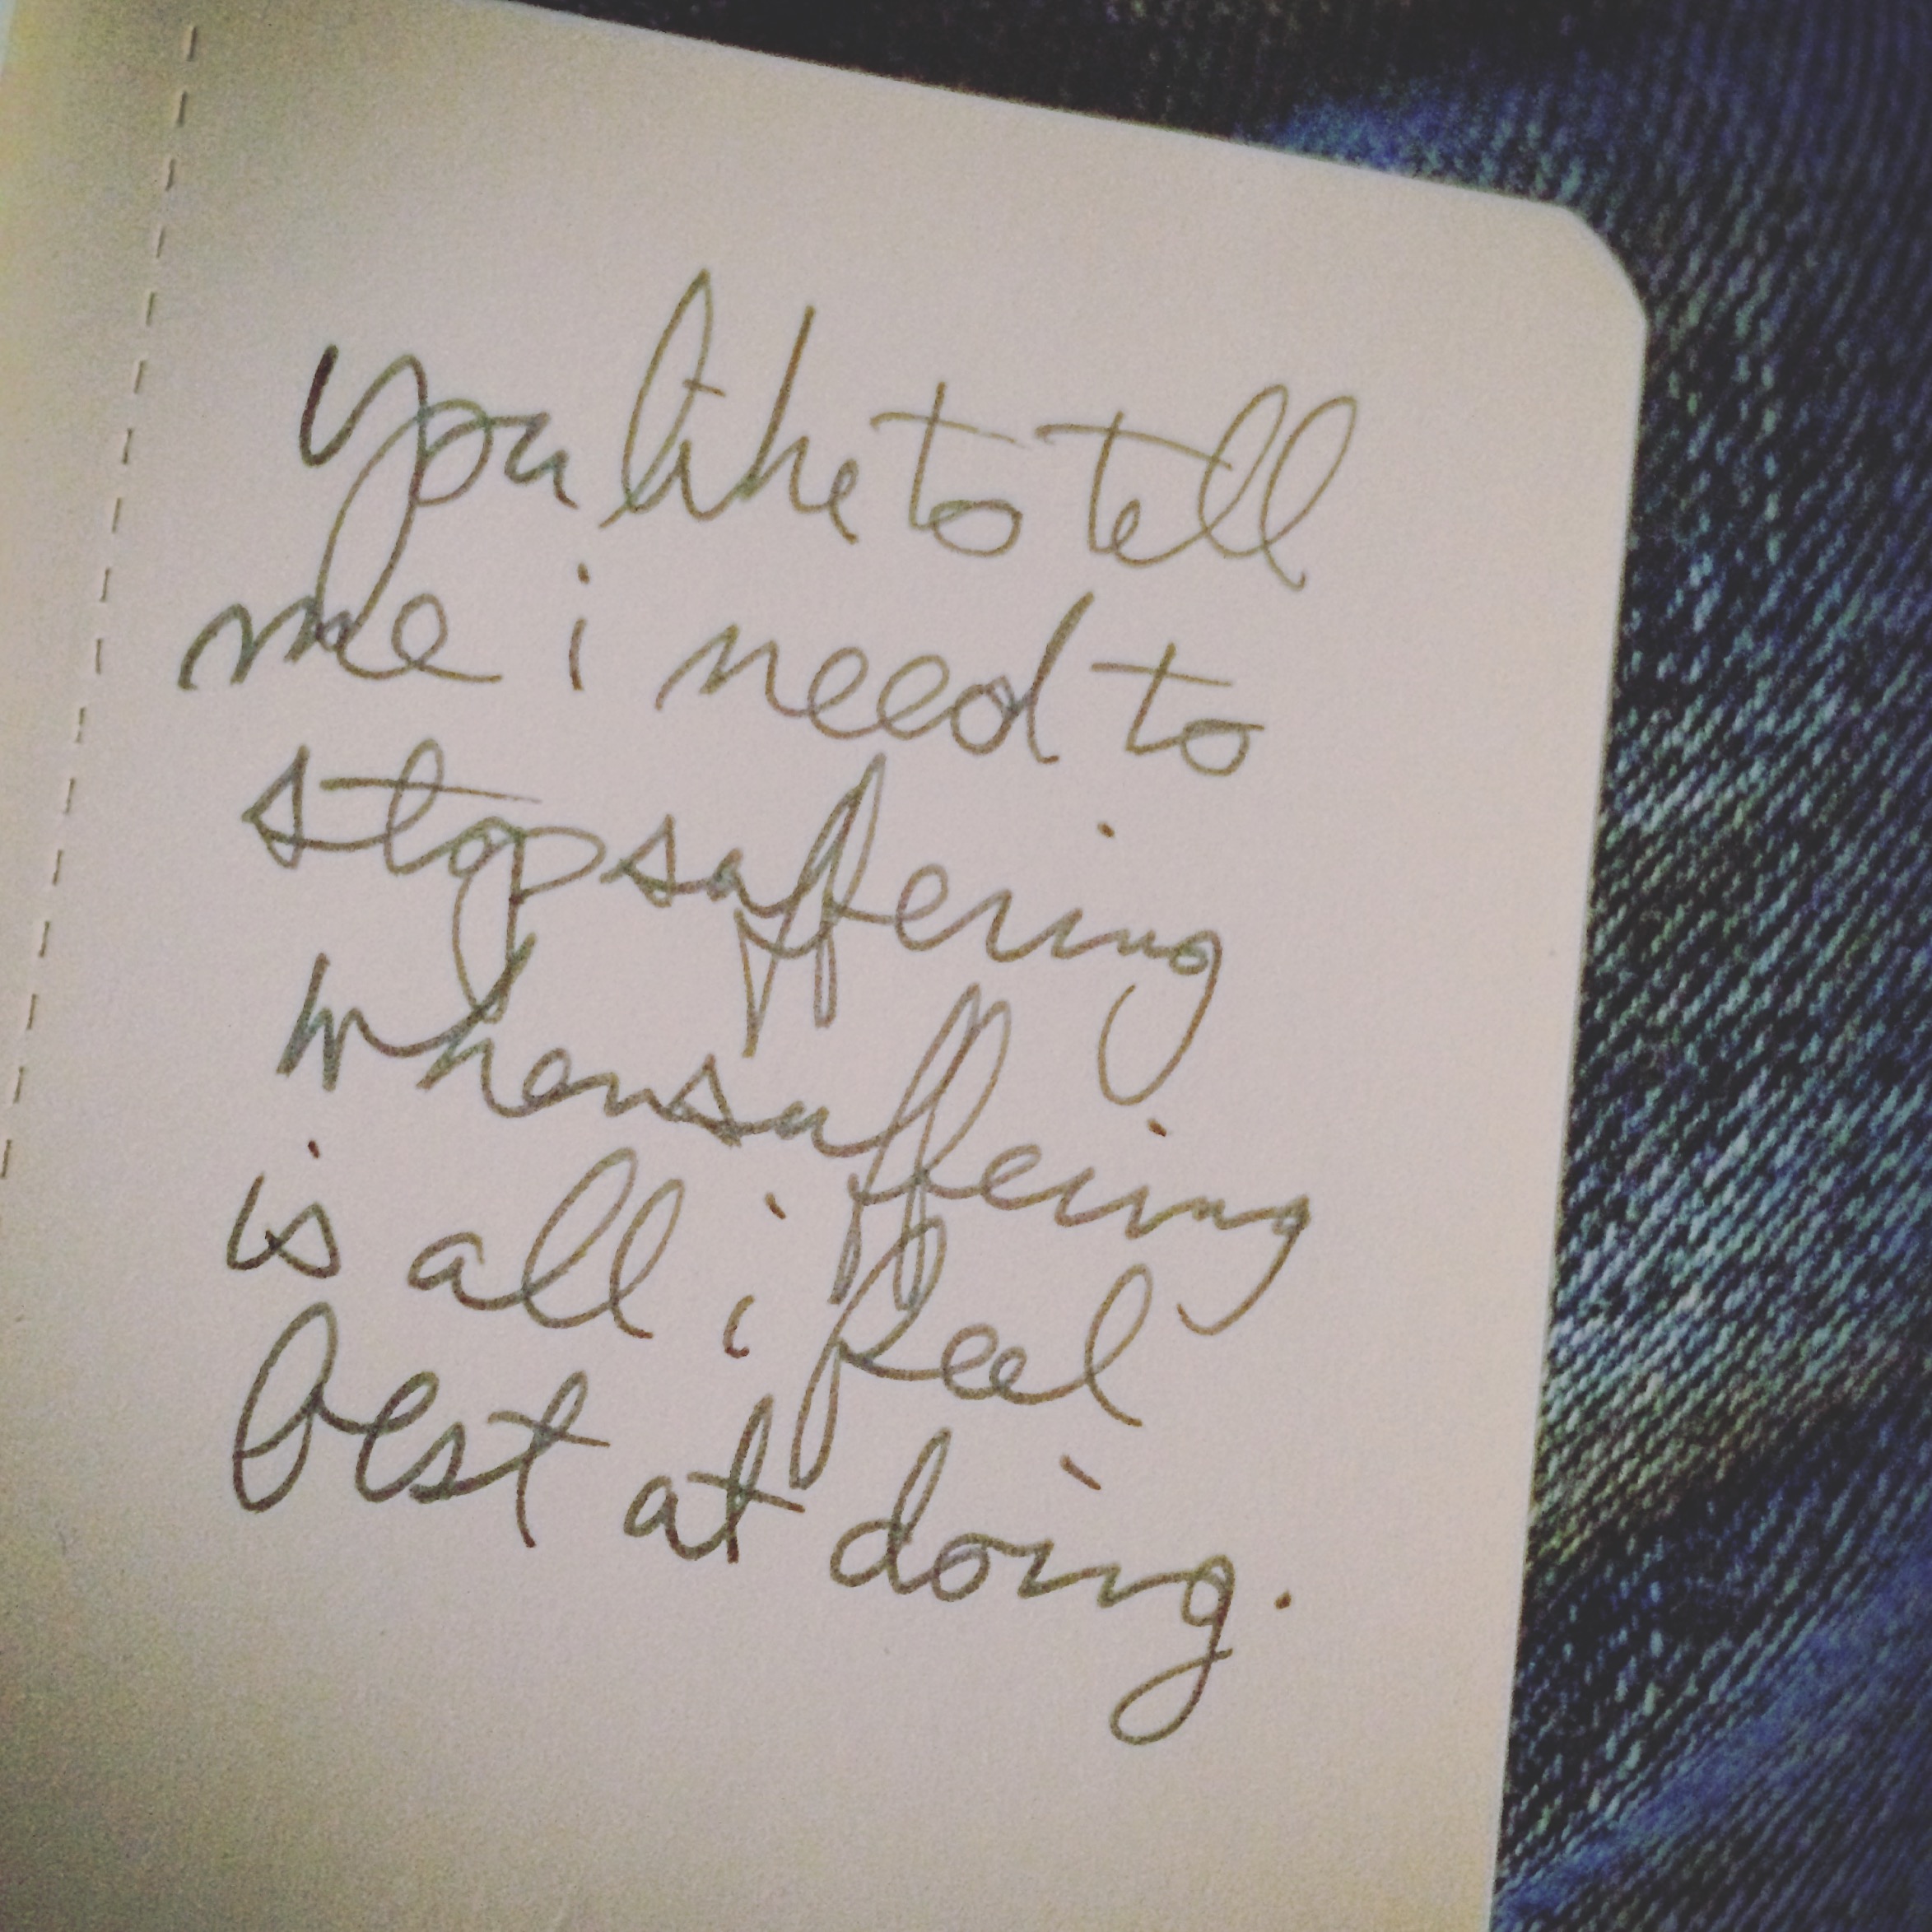 you like to tell
me i need to
stop suffering
when suffering
is all i feel
best at doing.